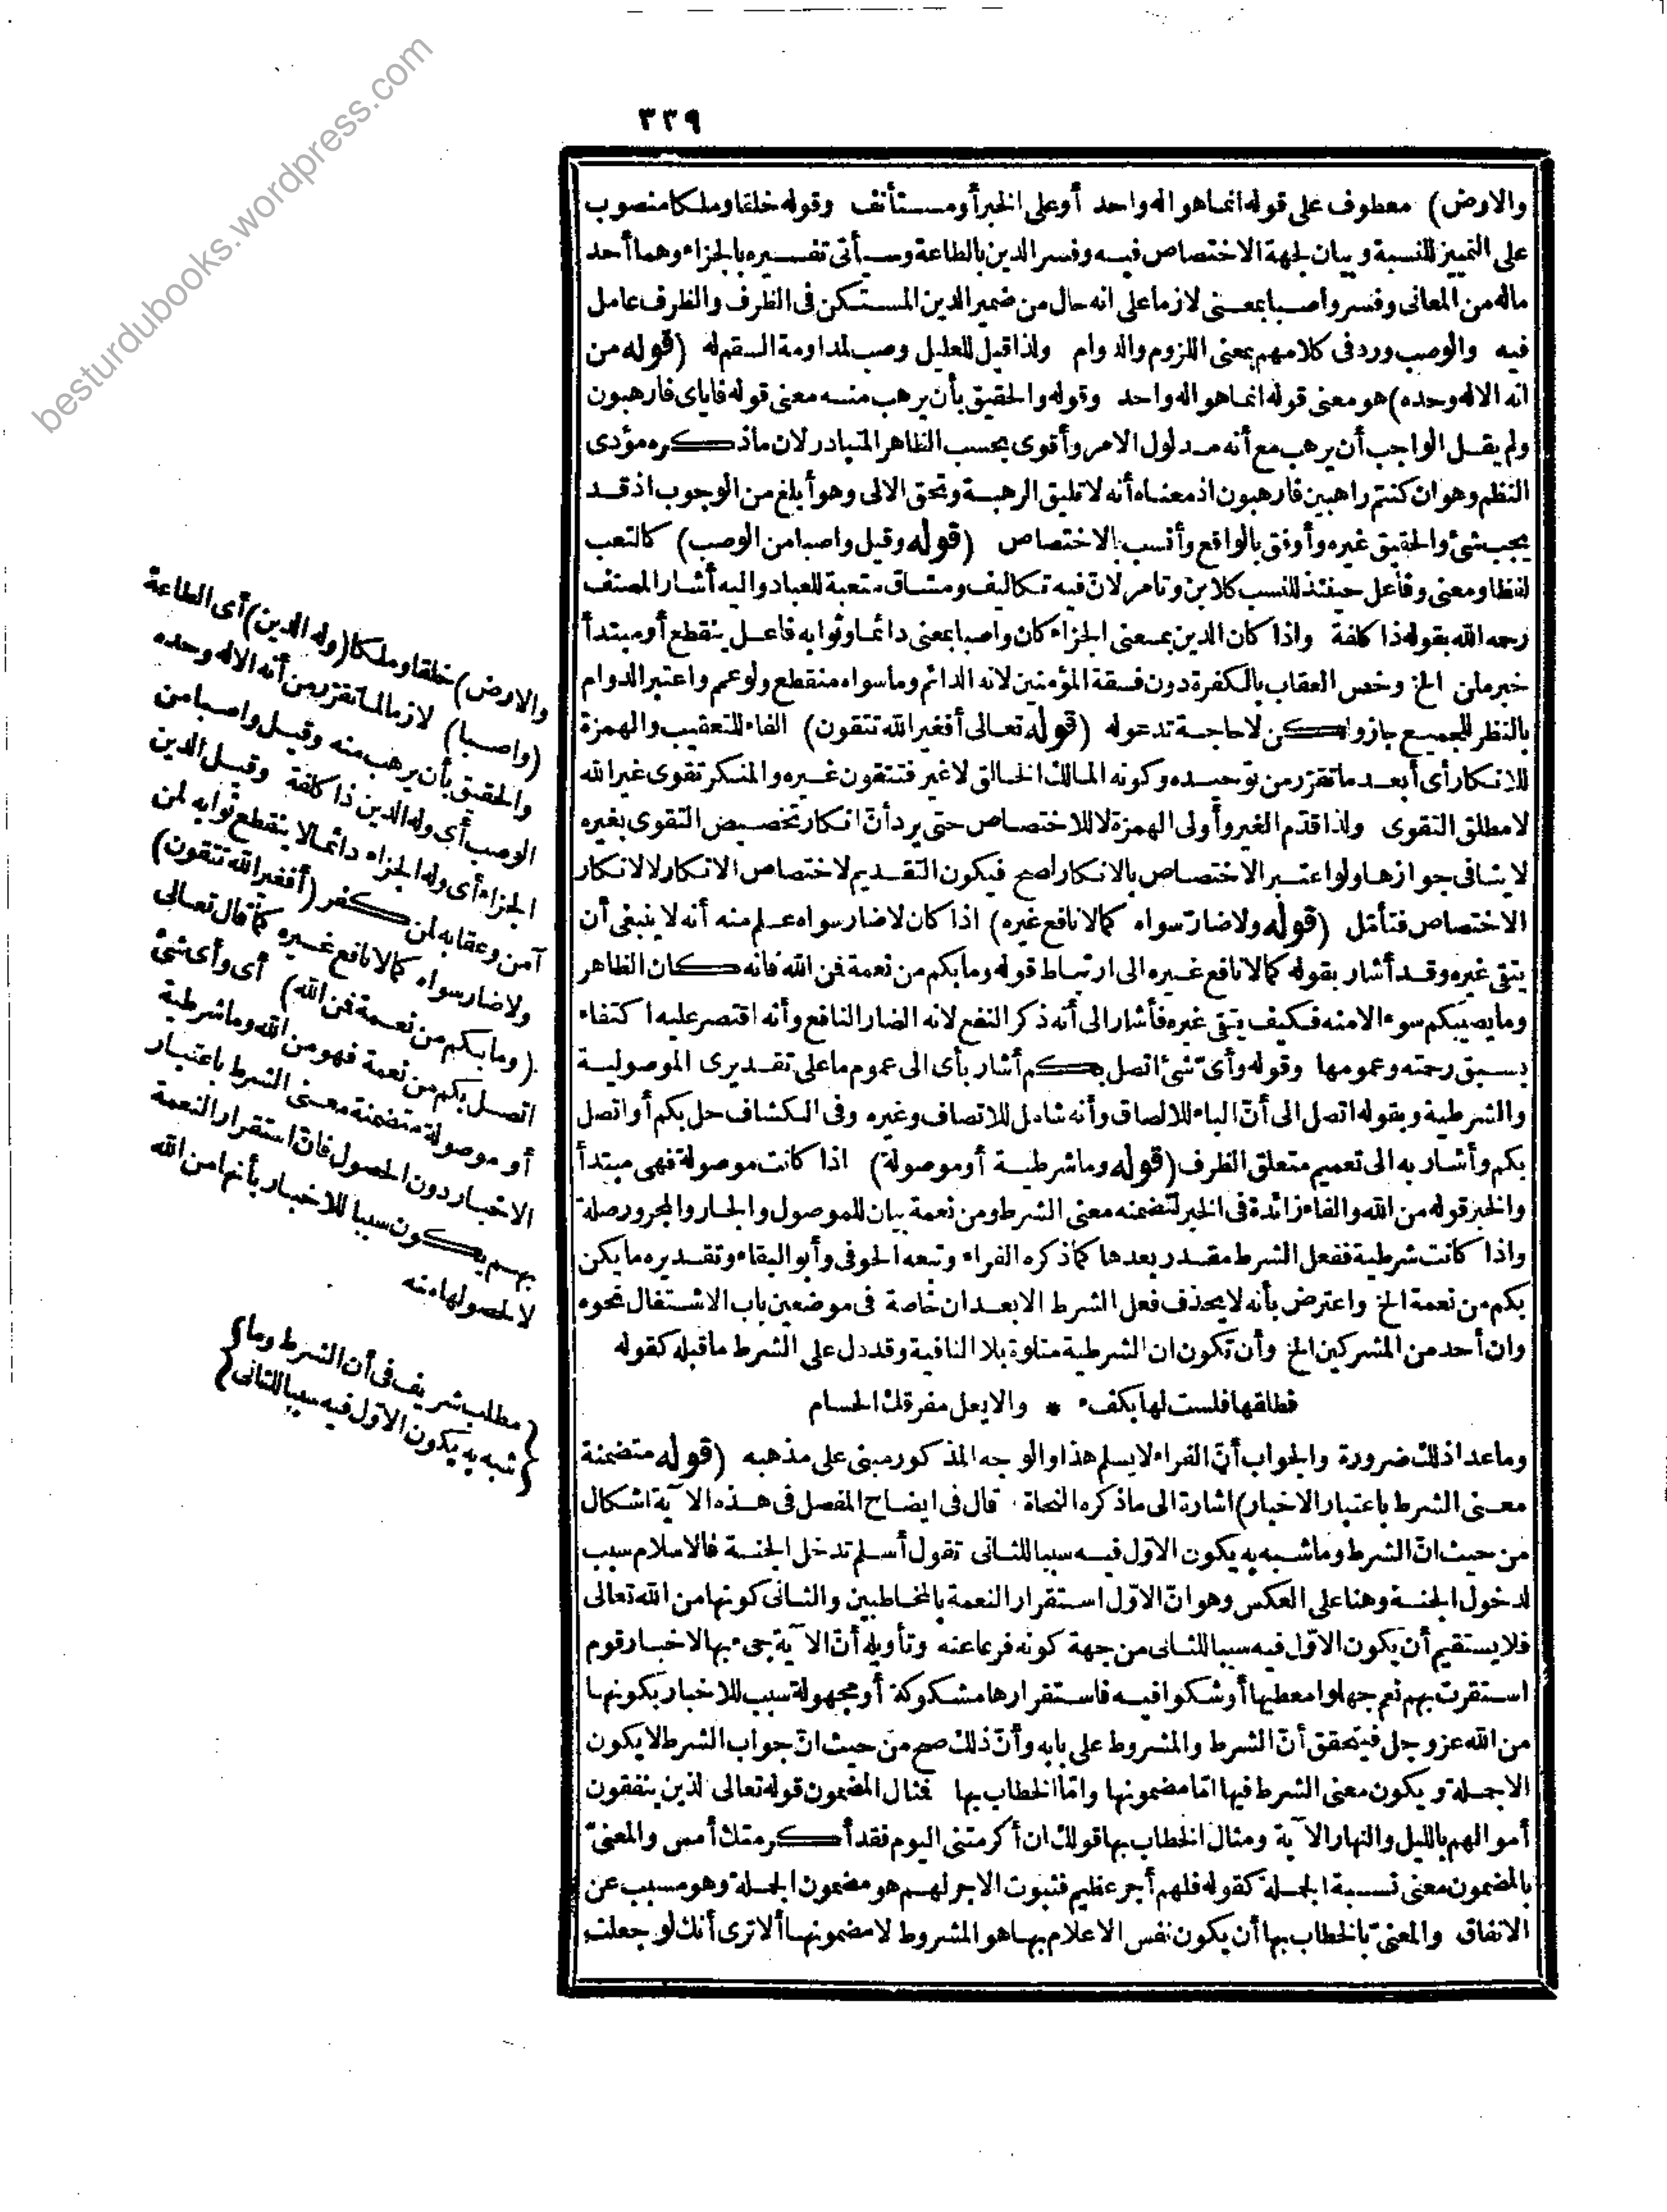 ٣٣٩
والارض) معطوف على قوله انما هو اله واحد أو على الخبر أو مستأنف وقوله خلقا وملكا منصوب
على التمييز للنسبة وبيان لجهة الاختصاص فيه وفسر الدين بالطاعة وسيأتى تفسيره بالجزاء وهما أحد
ماله من المعانى وفسر واصبا بمعنى لازما على انه حال من ضمير الدين المستكن فى الظرف والظرف عامل
فيه والوصب ورد فى كلامهم بمعنى اللزوم والدوام ولذا قيل للعليل وصب لمداومة السقم له (قوله من
انه الاله وحده) هو معنى قوله انما هو اله واحد وقوله والحقيق بأن يرهب منه معنى قوله فاياى فارهبون
ولم يقل الواجب أن يرهب مع أنه مدلول الامر وأقوى بحسب الظاهر المتبادر لان ماذكره مؤدى
النظم وهو ان كنتم راهبين فارهبون اذ معناه أنه لا تليق الرهبة وتحق الالى وهو أبلغ من الوجوب اذ قد
يجب شئ والحقيق غيره وأوفق بالواقع وأنسب بالاختصاص (قوله وقيل واصبا من الوصب) كالتعب
لفظا ومعنى وفاعل حينئذ للنسب كلابن وتامر لان فيه تكاليف ومشاق متعبة للعباد واليه أشار المصنف
رحمه الله بقوله ذا كلفة واذا كان الدين بمعنى الجزاء كان واصبا بمعنى دائما وثوابه فاعل ينقطع أو مبتدأ
خبره لمن الخ وخص العقاب بالكفرة دون فسقة المؤمنين لانه الدائم وما سواه منقطع ولو عمم واعتبر الدوام
بالنظر للجميع جاز ولكن لا حاجة تدعو له (قوله تعالى أفغير الله تتقون) الفاء للتعقيب والهمزة
للانكار أى أبعد ما تقرر من توحيده وكونه المالك الخالق لا غير فتتقون غيره والمنكر تقوى غير الله
لا مطلق التقوى ولذا قدّم الغير وأولى الهمزة لا للاختصاص حتى يرد أنّ انكار تخصيص التقوى بغيره
لا ينافى جوازها ولو اعتبر الاختصاص بالانكار لصح فيكون التقديم لاختصاص الانكار لا لانكار
الاختصاص فتأمّل (قوله ولا ضارّ سواه كما لا نافع غيره) اذا كان لا ضار سواه علم منه أنه لا ينبغى أن
يتقى غيره وقد أشار بقوله كما لا نافع غيره الى ارتباط قوله وما بكم من نعمة فمن الله فانه كان الظاهر
وما يصيبكم سوء الا منه فكيف يتقى غيره فأشار الى أنه ذكر النفع لانه الضار النافع وأنه اقتصر عليه اكتفاء
بسبق رحمته وعمومها وقوله وأىّ شئ اتصل بكم أشار بأى الى عموم ما على تقديرى الموصولية
والشرطية وبقوله اتصل الى أنّ الباء للالصاق وأنه شامل للاتصاف وغيره وفى الكشاف حل بكم أو اتصل
بكم وأشار به الى تعميم متعلق الظرف (قوله وما شرطية أو موصولة) اذا كانت موصولة فهى مبتدأ
والخبر قوله من الله والفاء زائدة فى الخبر لتضمنه معنى الشرط ومن نعمة بيان للموصول والجار والمجرور صلة
واذا كانت شرطية ففعل الشرط مقدر بعدها كما ذكره الفراء وتبعه الحوفى وأبو البقاء وتقديره ما يكن
بكم من نعمة الخ واعترض بأنه لا يحذف فعل الشرط الا بعد ان خاصة فى موضعين باب الاشتغال نحوه
وان أحد من المشركين الخ وأن تكون ان الشرطية متلوة بلا النافية وقد دل على الشرط ما قبله كقوله
فطلقها فلست لها بكفء * والا يعل مفرقك الحسام
وما عدا ذلك ضرورة والجواب أنّ الفراء لا يسلم هذا والوجه المذكور مبنى على مذهبه (قوله متضمنة
معنى الشرط باعتبار الاخبار) اشارة الى ماذكره النحاة قال فى ايضاح المفصل فى هذه الآية اشكال
من حيث انّ الشرط وما شبه به يكون الاوّل فيه سببا للثانى تقول أسلم تدخل الجنة فالاسلام سبب
لدخول الجنة وهنا على العكس وهو انّ الاوّل استقرار النعمة بالمخاطبين والثانى كونها من الله تعالى
فلا يستقيم أن يكون الاوّل فيه سببا للثانى من جهة كونه فرعا عنه وتأويله أنّ الآية جىء بها لاخبار قوم
استقرت بهم نعم جهلوا معطيها أو شكوا فيه فاستقرارها مشكوكة أو مجهولة سبب للاخبار بكونها
من الله عز وجل فيتحقق أنّ الشرط والمشروط على بابه وأنّ ذلك صح من حيث انّ جواب الشرط لا يكون
الا جملة ويكون معنى الشرط فيها امّا مضمونها وامّا الخطاب بها فمثال المضمون قوله تعالى لذين ينفقون
أموالهم بالليل والنهار الآية ومثال الخطاب بها قولك ان أكرمتنى اليوم فقد أكرمتك أمس والمعنىّ
بالمضمون معنى نسبة الجملة كقوله فلهم أجر عظيم فثبوت الاجر لهم هو مضمون الجملة وهو مسبب عن
الانفاق والمعنىّ بالخطاب بها أن يكون نفس الاعلام بها هو المشروط لا مضمونها ألا ترى أنك لو جعلت
والارض) خلقا وملكا (وله الدين) أى الطاعة
(واصبا) لازما لما تقرّر من أنه الاله وحده
والحقيق بأن يرهب منه وقيل واصبا من
الوصب أى وله الدين ذا كلفة وقيل الدين
الجزاء أى وله الجزاء دائما لا ينقطع ثوابه لمن
آمن وعقابه لمن كفر (أفغير الله تتقون)
ولا ضار سواه كما لا نافع غيره كما قال تعالى
(وما بكم من نعمة فمن الله) أى وأى شئ
اتصل بكم من نعمة فهو من الله وما شرطية
أو موصولة متضمنة معنى الشرط باعتبار
الاخبار دون الحصول فانّ استقرار النعمة
بهم يكون سببا للاخبار بأنها من الله
لا لحصولها منه
{مطلب شريف فى أن الشرط وما}
{شبه به يكون الاوّل فيه سببا للثانى}
besturdubooks.wordpress.com